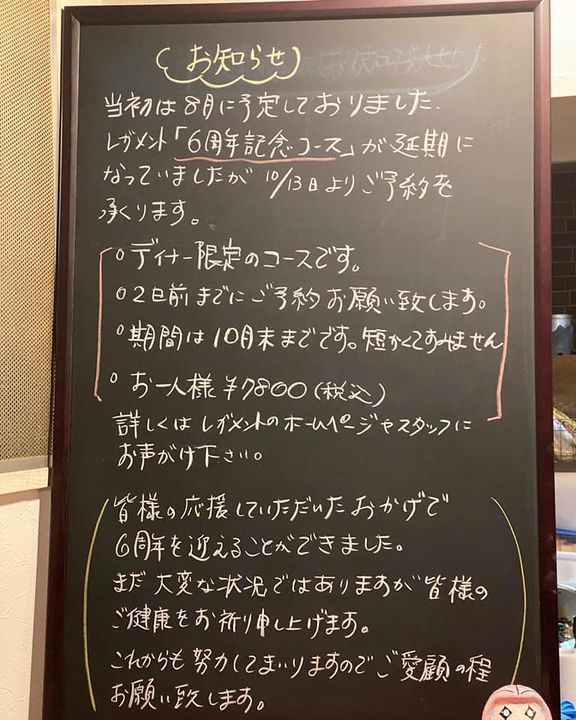 お知らせ
当初は8月に予定しておりました、
レガメント「6周年記念コース」が延期に
なっていましたが10/13日よりご予約を
承ります。
○ディナー限定のコースです。
○2日前までにご予約お願い致します。
○期間は10月末までです。短かくてすみません
○お一人様¥7800(税込)
詳しくはレガメントのホームページやスタッフに
お声がけ下さい。
皆様の応援していただいたおかげで
6周年を迎えることができました。
まだ大変な状況ではありますが皆様の
ご健康をお祈り申し上げます。
これからも努力してまいりますのでご愛顧の程
お願い致します。